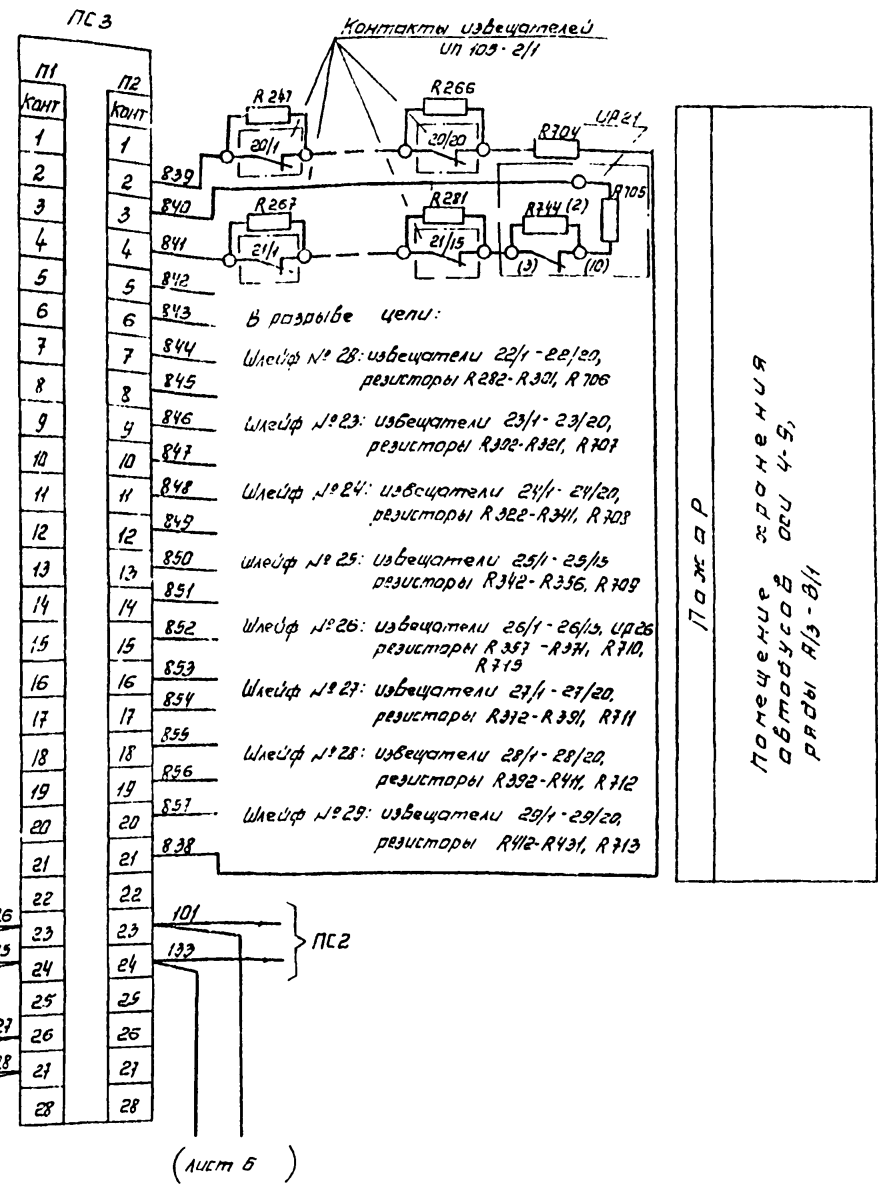 ПС3
Контакты извещателей
ИП 103-2/1
П1
П2
Конт
Конт
1
2
3
4
5
6
7
8
9
10
11
12
13
14
15
16
17
18
19
20
21
22
23
24
25
26
27
28
1
2
3
4
5
6
7
8
9
10
11
12
13
14
15
16
17
18
19
20
21
22
23
24
25
26
27
28
839
840
841
842
843
844
845
846
847
848
849
850
851
852
853
854
855
856
857
838
101
133
R247
20/1
R266
20/20
R704
UР21
R705
R267
21/1
R281
21/15
R744 (2)
(3)
(10)
В разрыве цепи:
Шлейф № 28: извещатели 22/1-22/20,
резисторы R282-R301, R706
Шлейф №23: извещатели 23/1-23/20,
резисторы R302-R321, R707
Шлейф №24: извещатели 24/1-24/20,
резисторы R322-R341, R708
Шлейф № 25: извещатели 25/1-25/15
резисторы R342-R356, R709
Шлейф №26: извещатели 26/1-26/15, UР26
резисторы R357-R371, R710,
R715
Шлейф №27: извещатели 27/1-27/20,
резисторы R372-R391, R711
Шлейф №28: извещатели 28/1-28/20,
резисторы R392-R411, R712
Шлейф №29: извещатели 29/1-29/20,
резисторы R412-R431, R713
ПС2
(Лист 6)
Пожар
Помещение хранения
автобусов оси 4-5,
ряды А/3-В/1